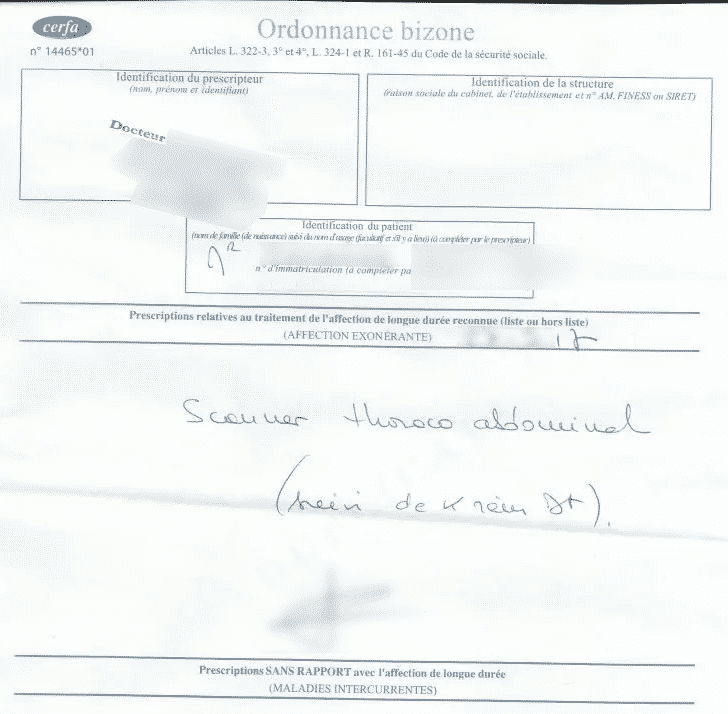 cerfa
n° 14465*01
Ordonnance bizone
Articles L. 322-3, 3° et 4°, L. 324-1 et R. 161-45 du Code de la sécurité sociale.
Identification du prescripteur
(nom, prénom et identifiant)
Docteur
Identification de la structure
(raison sociale du cabinet, de l'établissement et n° AM, FINESS ou SIRET)
Identification du patient
(nom de famille (de naissance) suivi du nom d'usage (facultatif et s'il y a lieu)) (à compléter par le prescripteur)
n° d'immatriculation (à compléter pa
Prescriptions relatives au traitement de l'affection de longue durée reconnue (liste ou hors liste)
(AFFECTION EXONÉRANTE)
17
Scanner thoraco abdominal
(suivi de K rein Dt).
Prescriptions SANS RAPPORT avec l'affection de longue durée
(MALADIES INTERCURRENTES)